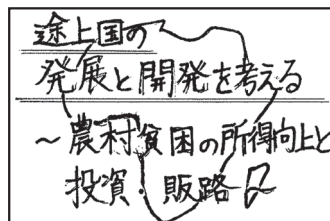 途上国の
発展と開発を考える
～農村貧困の所得向上と
投資・販路～